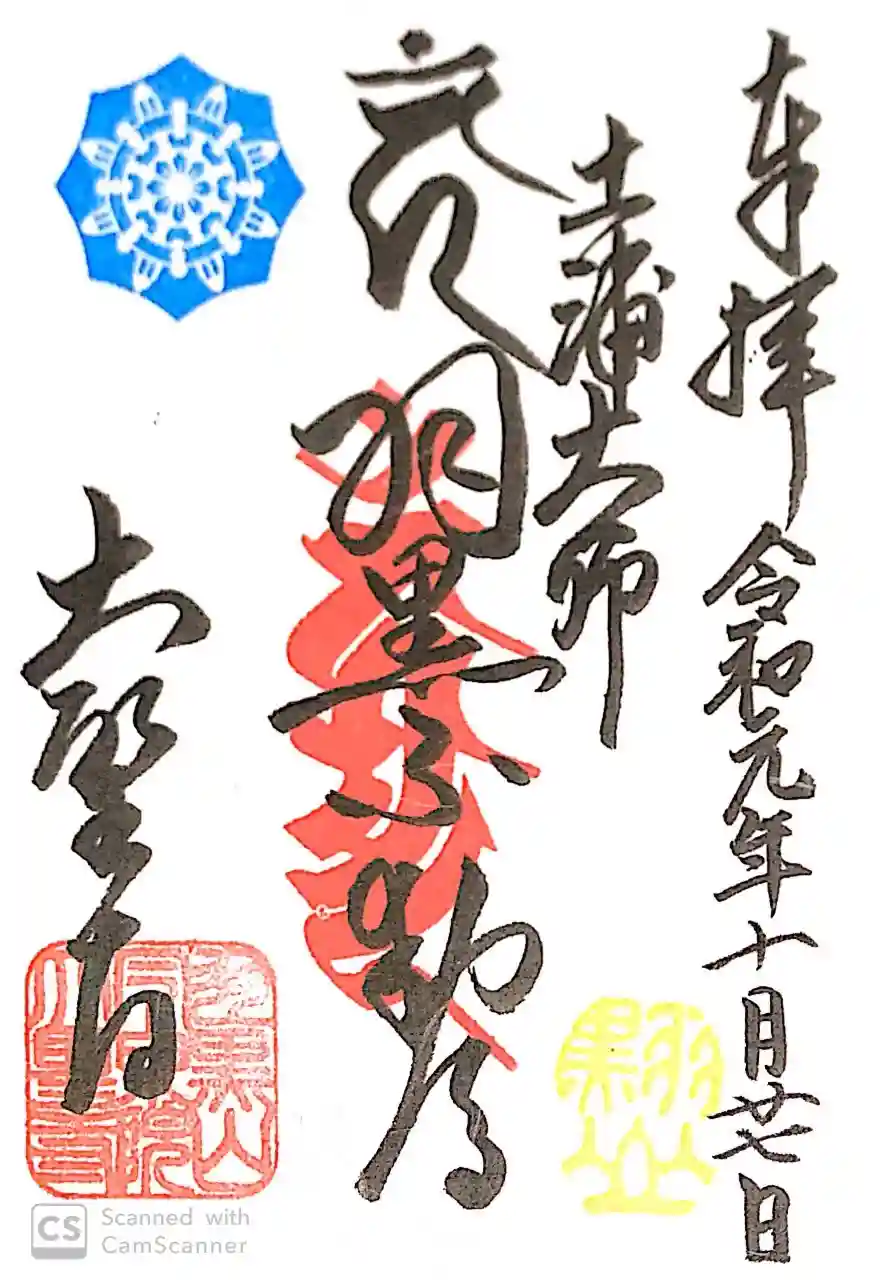 奉拝 令和元年十月廿七日
土浦大師
羽黒不動尊
大聖寺
羽黒山
Scanned with
CamScanner